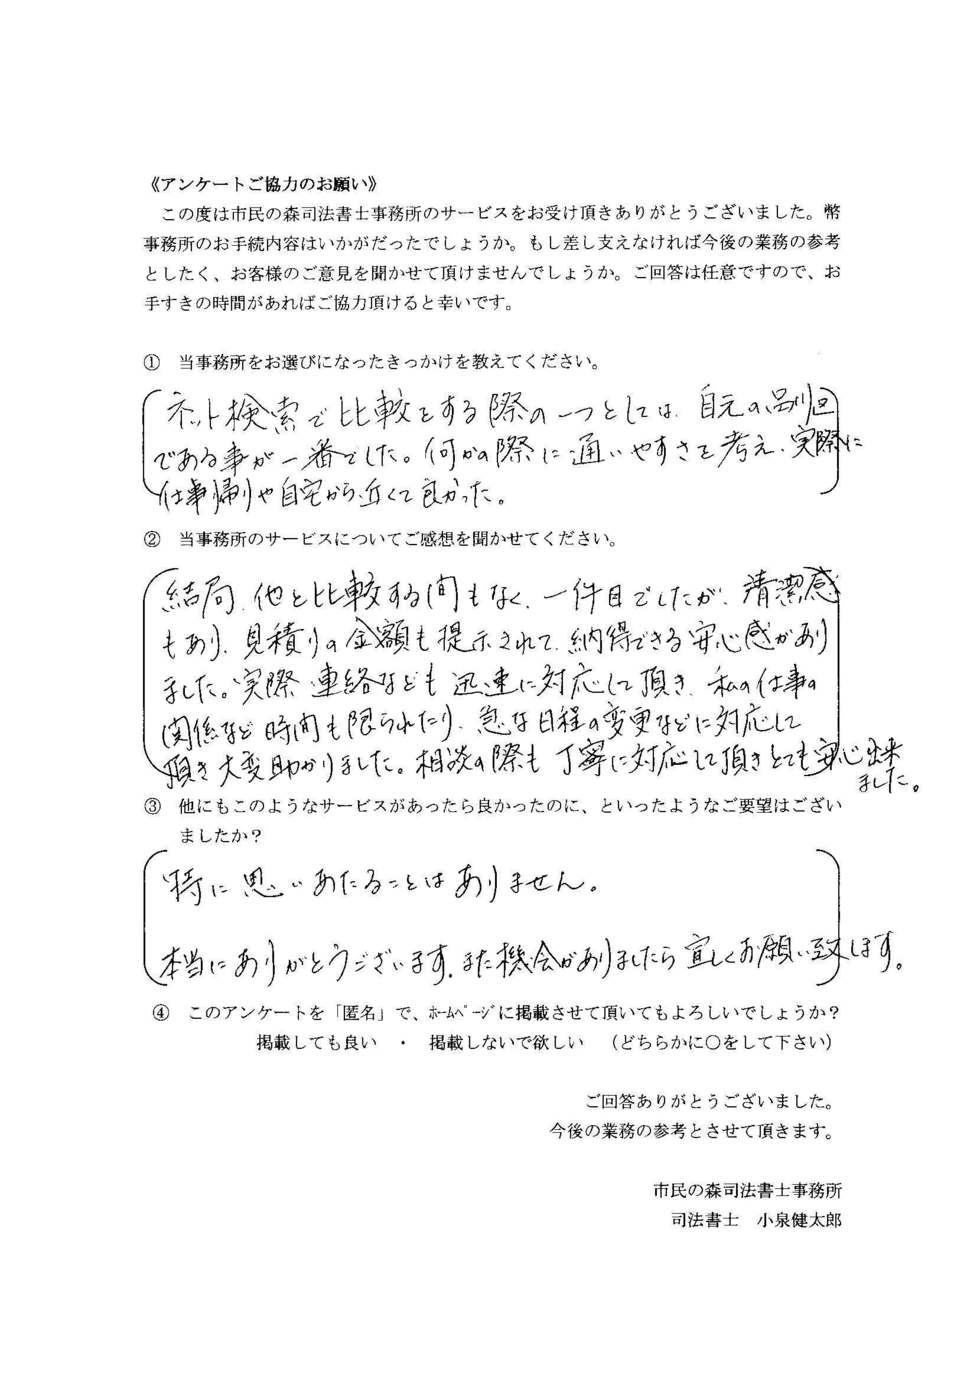 《アンケートご協力のお願い》
この度は市民の森司法書士事務所のサービスをお受け頂きありがとうございました。幣
事務所のお手続内容はいかがだったでしょうか。もし差し支えなければ今後の業務の参考
としたく、お客様のご意見を聞かせて頂けませんでしょうか。ご回答は任意ですので、お
手すきの時間があればご協力頂けると幸いです。
① 当事務所をお選びになったきっかけを教えてください。
ネット検索で比較をする際の一つとしては、自元の品川区
である事が一番でした。何かの際に通いやすさを考え、実際に
仕事帰りや自宅から近くて良かった。
② 当事務所のサービスについてご感想を聞かせてください。
結局、他と比較する間もなく、一件目でしたが、清潔感
もあり、見積りの金額も提示されて、納得できる安心感があり
ました。実際、連絡なども迅速に対応して頂き、私の仕事の
関係など時間も限られたり、急な日程の変更などに対応して
頂き大変助かりました。相談の際も丁寧に対応して頂きとても安心出来
ました。
③ 他にもこのようなサービスがあったら良かったのに、といったようなご要望はござい
ましたか？
特に思いあたることはありません。
本当にありがとうございます。また機会がありましたら宜しくお願い致します。
④ このアンケートを「匿名」で、ﾎｰﾑﾍﾟｰｼﾞに掲載させて頂いてもよろしいでしょうか？
掲載しても良い ・ 掲載しないで欲しい （どちらかに○をして下さい）
ご回答ありがとうございました。
今後の業務の参考とさせて頂きます。
市民の森司法書士事務所
司法書士 小泉健太郎